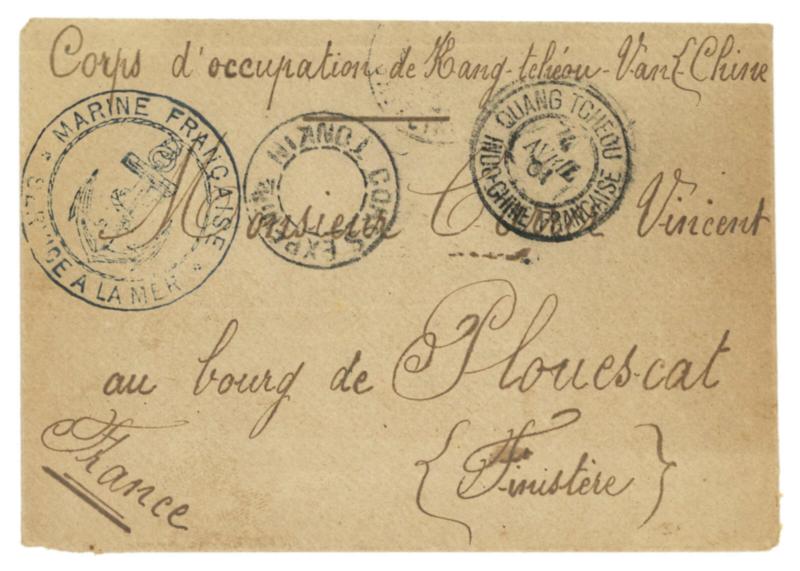 Corps d'occupation de Kang-tchéou-Van{Chine
* MARINE FRANÇAISE * SERVICE A LA MER
CORPS EXPÉD TONKIN
QUANG TCHEOU INDO-CHINE FRANÇAISE
AVRIL 01
Monsieur Vincent
au bourg de Plouescat
{Finistère}
France